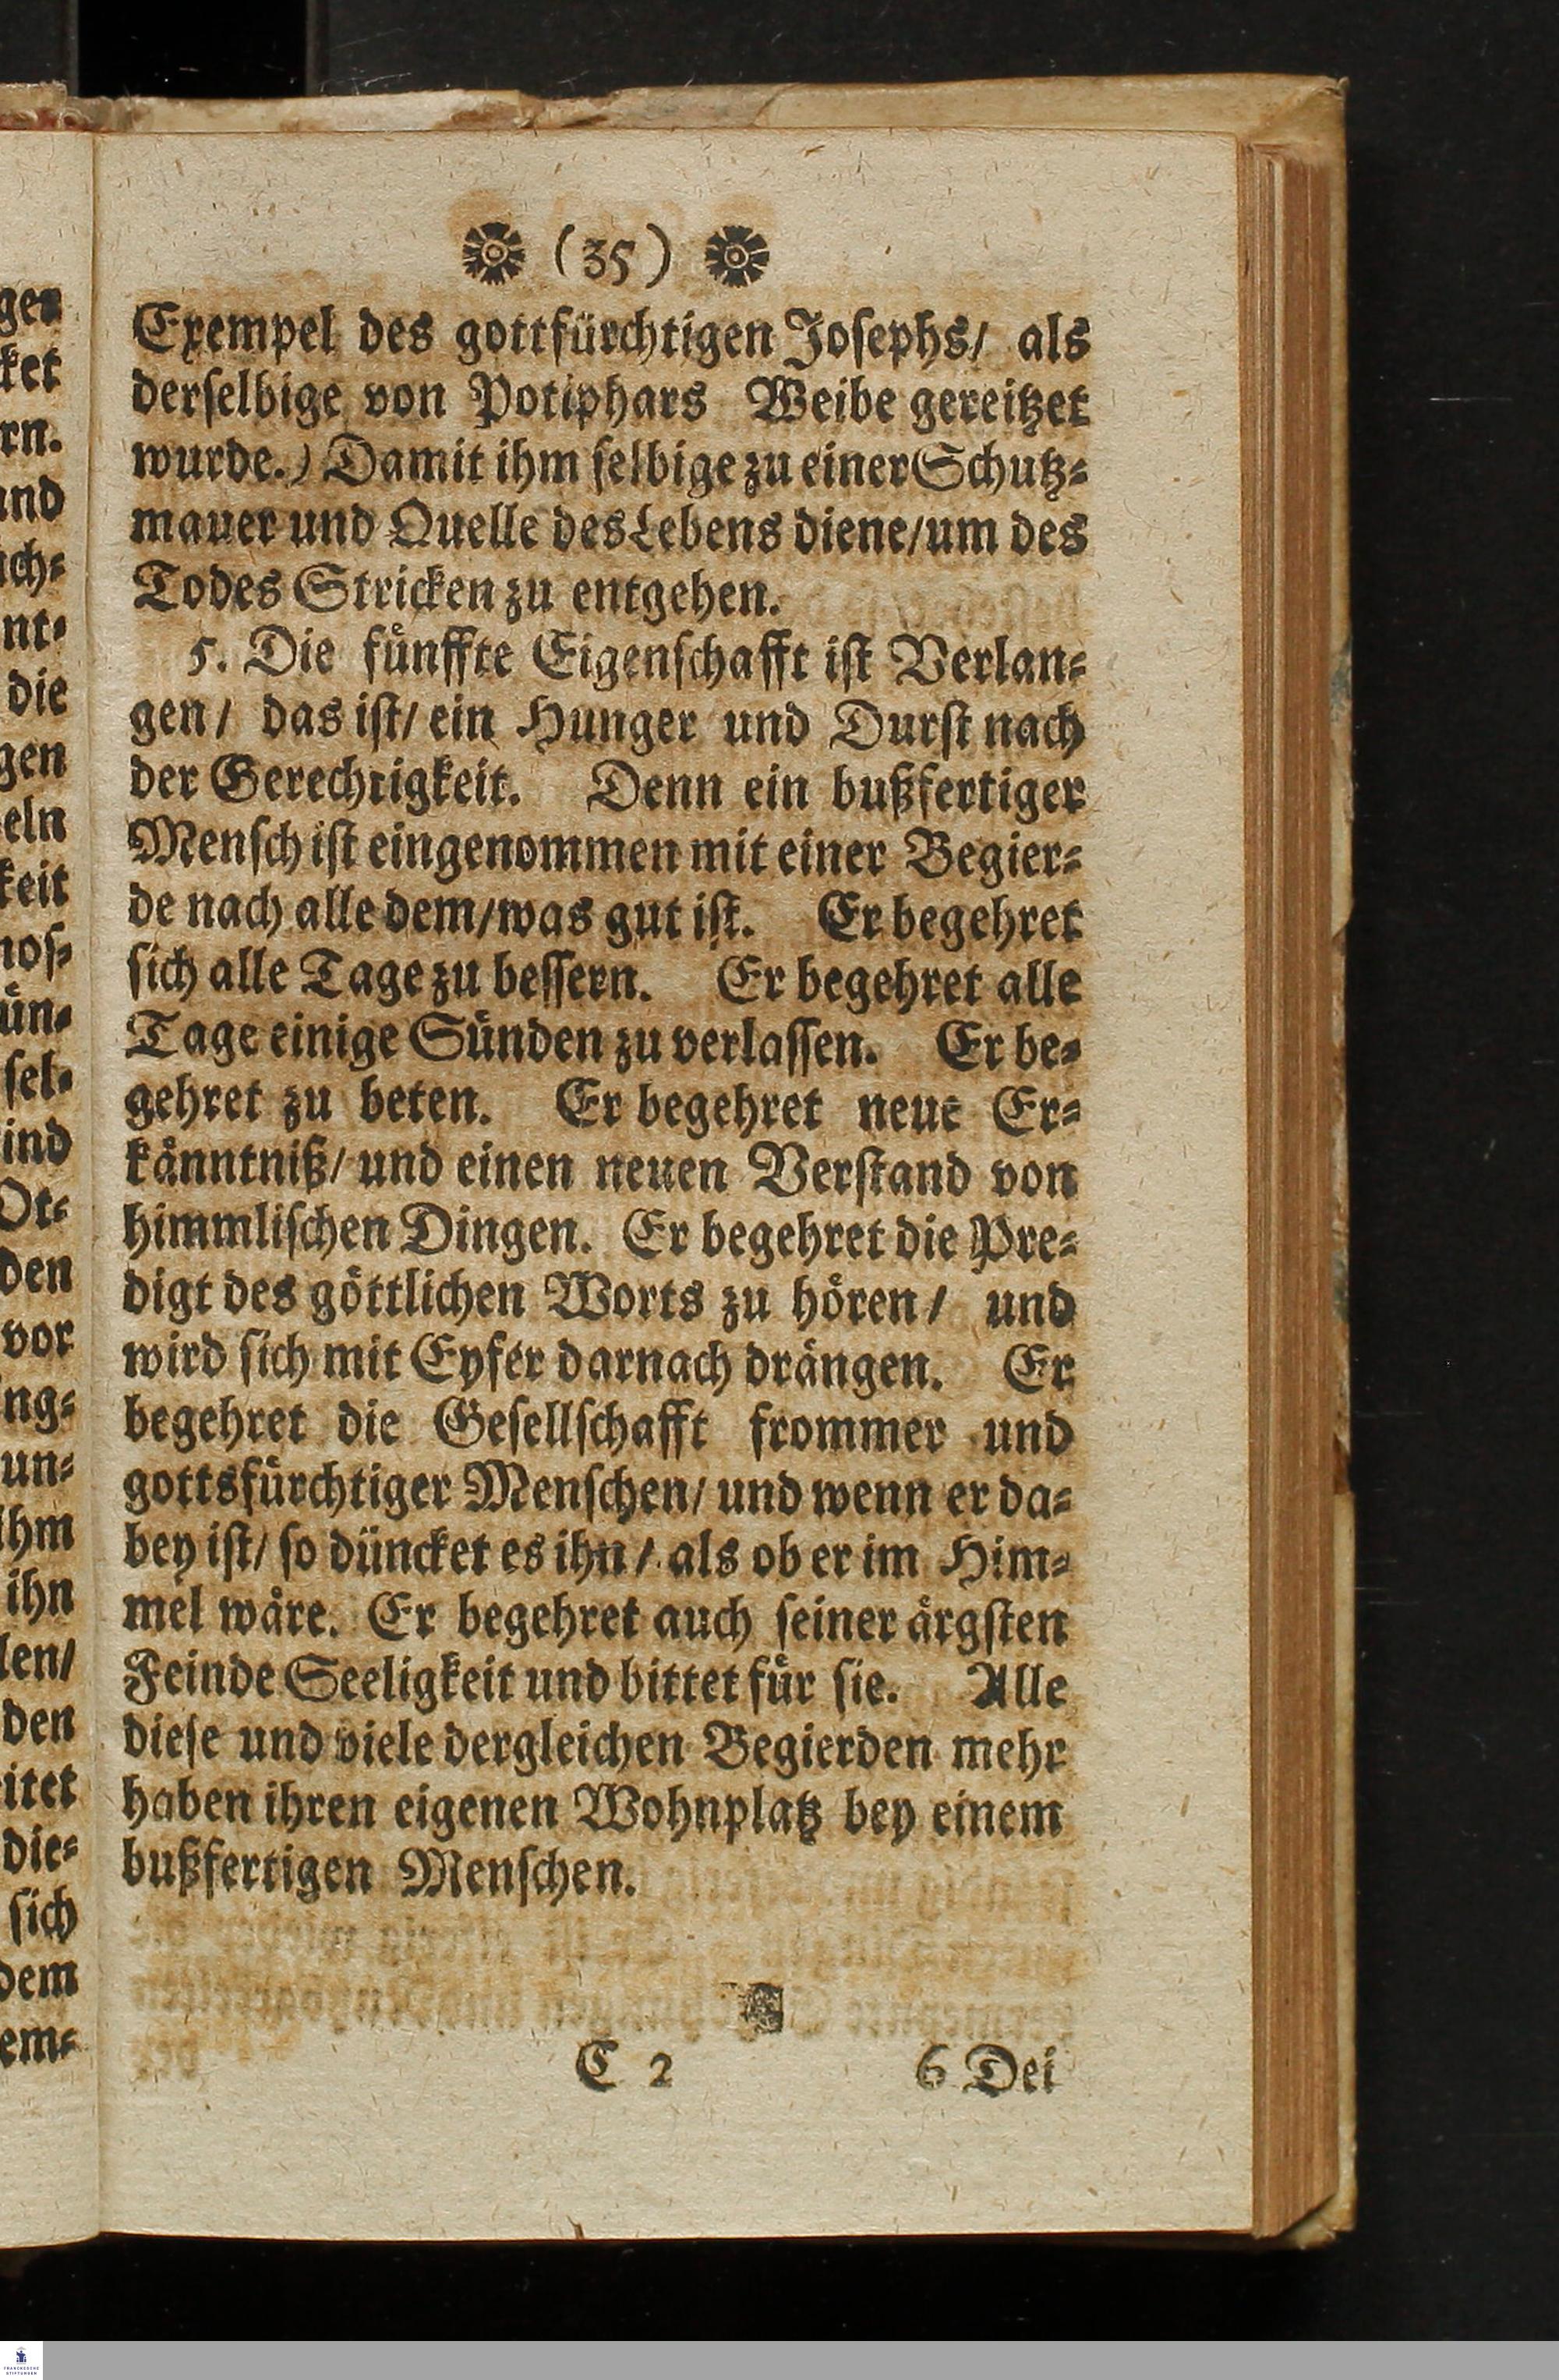 (35)
Exempel des gottfürchtigen Josephs/ als
derselbige von Potiphars Weibe gereitzet
wurde.) Damit ihm selbige zu einer Schutz-
mauer und Quelle des Lebens diene/um des
Todes Stricken zu entgehen.
5. Die fünffte Eigenschafft ist Verlan-
gen/ das ist/ ein Hunger und Durst nach
der Gerechtigkeit. Denn ein bußfertiger
Mensch ist eingenommen mit einer Begier-
de nach alle dem/was gut ist. Er begehret
sich alle Tage zu bessern. Er begehret alle
Tage einige Sünden zu verlassen. Er be-
gehret zu beten. Er begehret neue Er-
känntniß/ und einen neuen Verstand von
himmlischen Dingen. Er begehret die Pre-
digt des göttlichen Worts zu hören/ und
wird sich mit Eyfer darnach drängen. Er
begehret die Gesellschafft frommer und
gottsfürchtiger Menschen/ und wenn er da-
bey ist/ so düncket es ihn/ als ob er im Him-
mel wäre. Er begehret auch seiner ärgsten
Feinde Seeligkeit und bittet für sie. Alle
diese und viele dergleichen Begierden mehr
haben ihren eigenen Wohnplatz bey einem
bußfertigen Menschen.
C 2 6 Dei
FRANCKESCHE
STIFTUNGEN